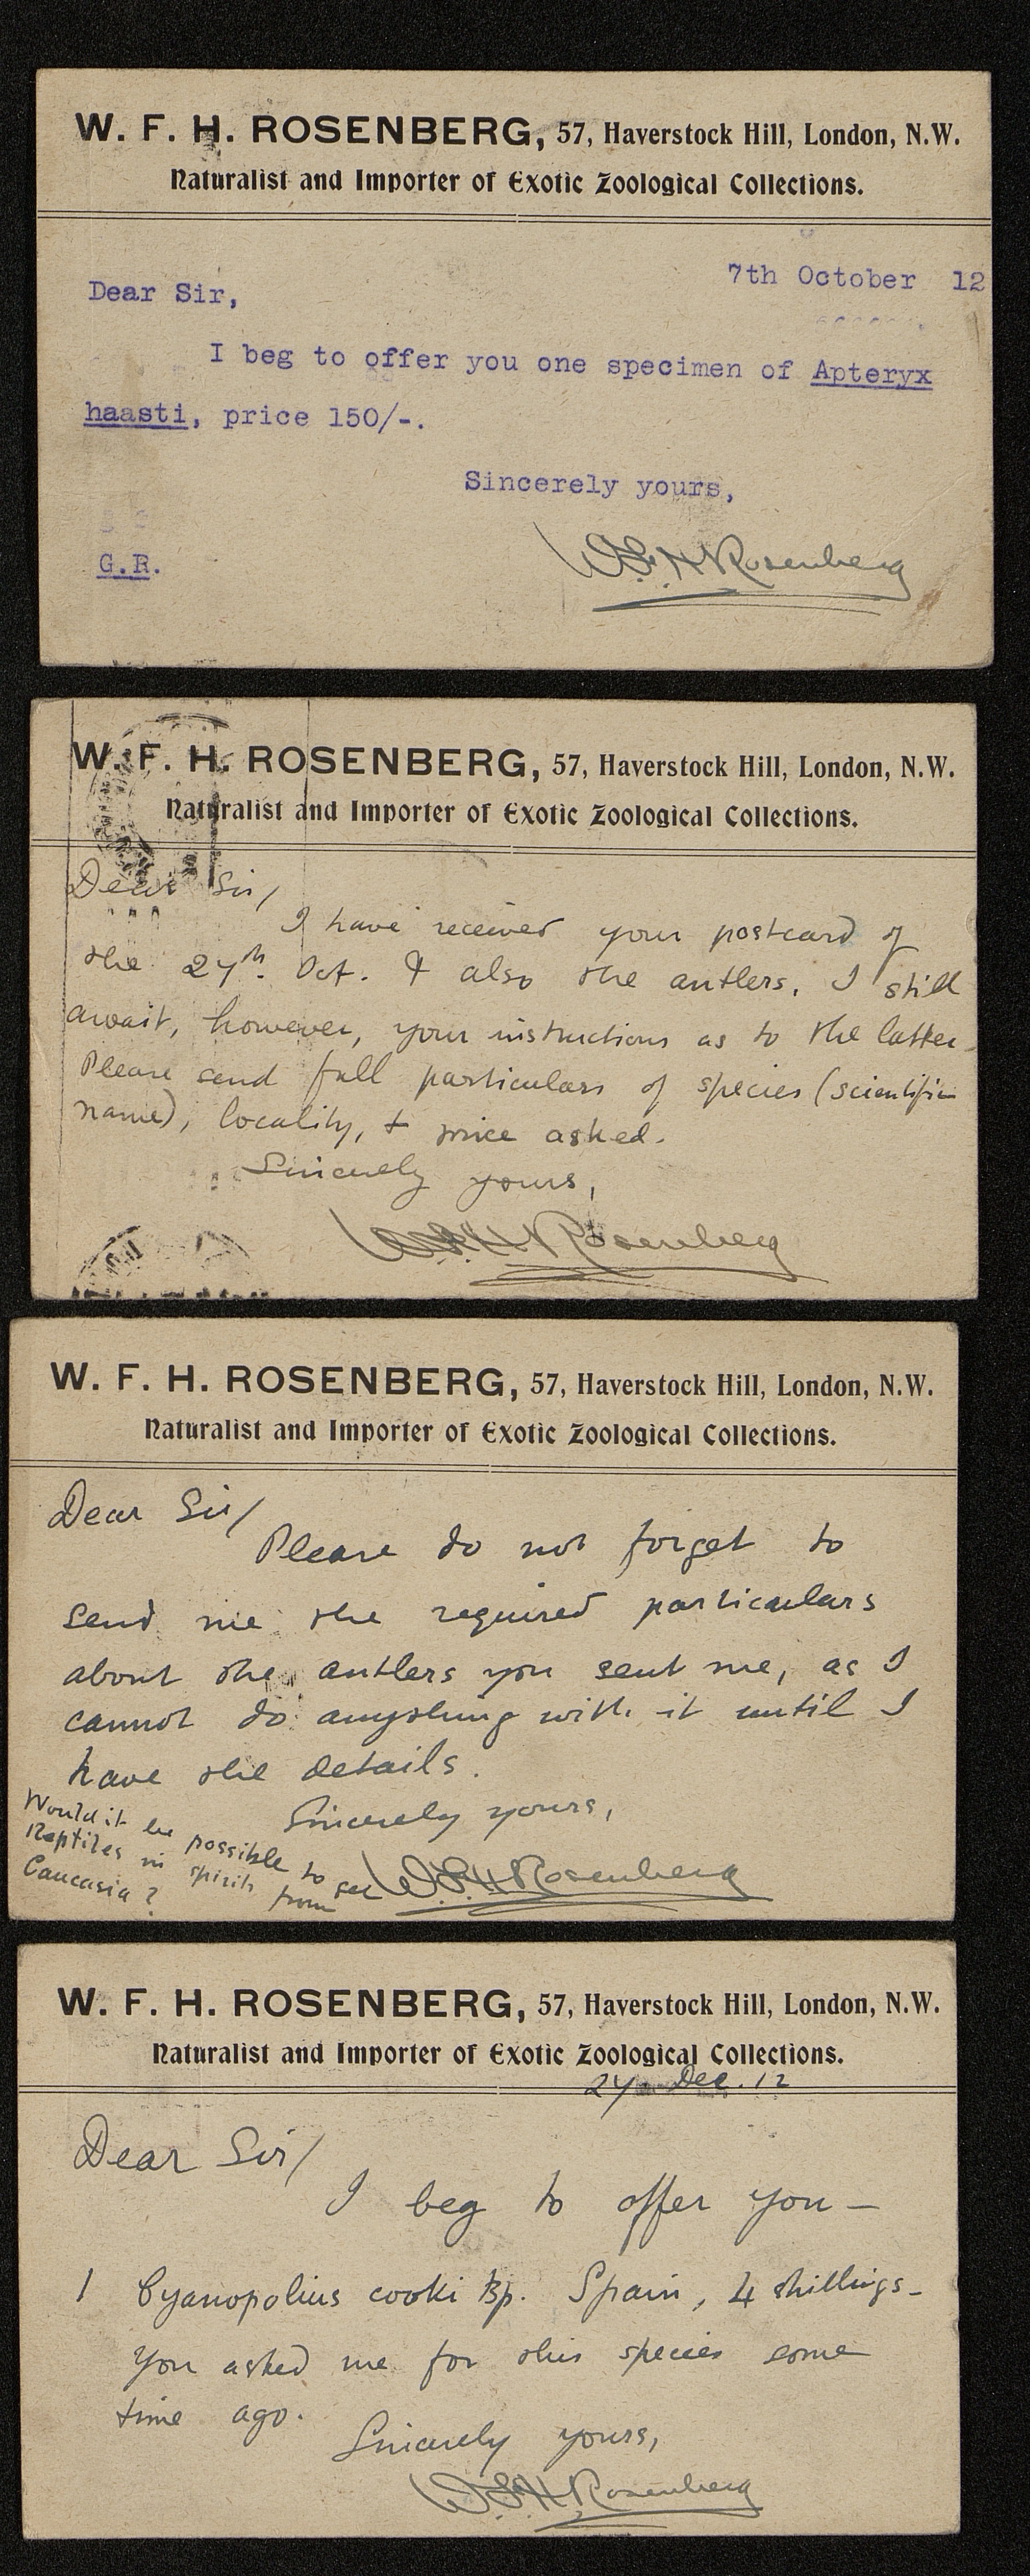 W. F. H. ROSENBERG, 57, Haverstock Hill, London, N.W.
Naturalist and Importer of Exotic Zoological Collections.
7th October 12
Dear Sir,
I beg to offer you one specimen of Apteryx
haasti, price 150/-.
Sincerely yours,
WFH Rosenberg
G.R.
W. F. H. ROSENBERG, 57, Haverstock Hill, London, N.W.
Naturalist and Importer of Exotic Zoological Collections.
Dear Sir/
I have received your postcard of
the 27th. Oct. & also the antlers. I still
await, however, your instructions as to the latter.
Please send full particulars of species (scientific
name), locality, & price asked.
Sincerely yours,
WFH Rosenberg
W. F. H. ROSENBERG, 57, Haverstock Hill, London, N.W.
Naturalist and Importer of Exotic Zoological Collections.
Dear Sir/
Please do not forget to
send me the required particulars
about the antlers you sent me, as I
cannot do anything with it until I
have the details.
Sincerely yours,
WFH Rosenberg
Would it be possible to get
Reptiles in spirits from
Caucasia?
W. F. H. ROSENBERG, 57, Haverstock Hill, London, N.W.
Naturalist and Importer of Exotic Zoological Collections.
27. Dec. 12
Dear Sir/
I beg to offer you —
1 Cyanopolius cooki Bp. Spain, 4 shillings.
You asked me for this species some
time ago.
Sincerely yours,
WFH Rosenberg